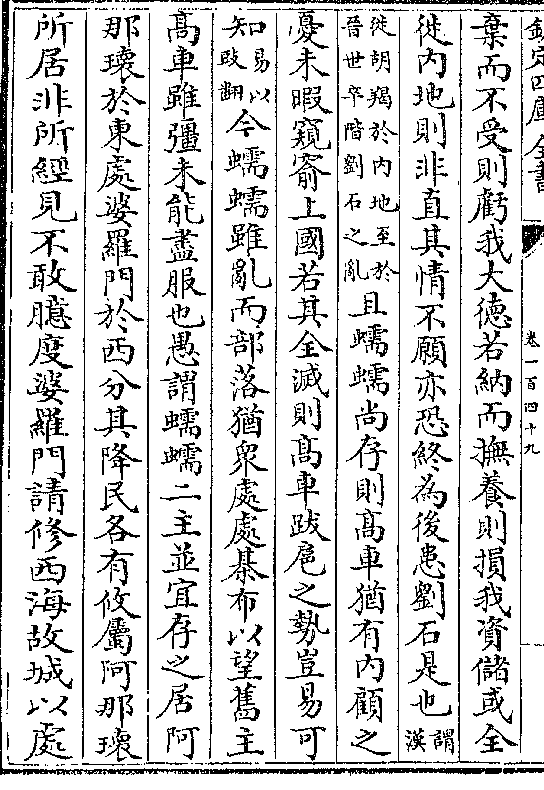 欽定四庫全書
卷一百四十九
棄而不受則虧我大德若納而撫養則損我資儲或全
徙内地則非直其情不願亦恐終為後患劉石是也謂漢
徙胡羯於内地至於晉世卒階劉石之亂且蠕蠕尚存則髙車猶有内顧之
憂未暇窺窬上國若其全滅則髙車跋扈之勢豈易可
知易以豉翻今蠕蠕雖亂而部落猶衆處處棊布以望舊主
髙車雖彊未能盡服也愚謂蠕蠕二主並宜存之居阿
那瓌於東處婆羅門於西分其降民各有攸屬阿那瓌
所居非所經見不敢臆度婆羅門請修西海故城以處